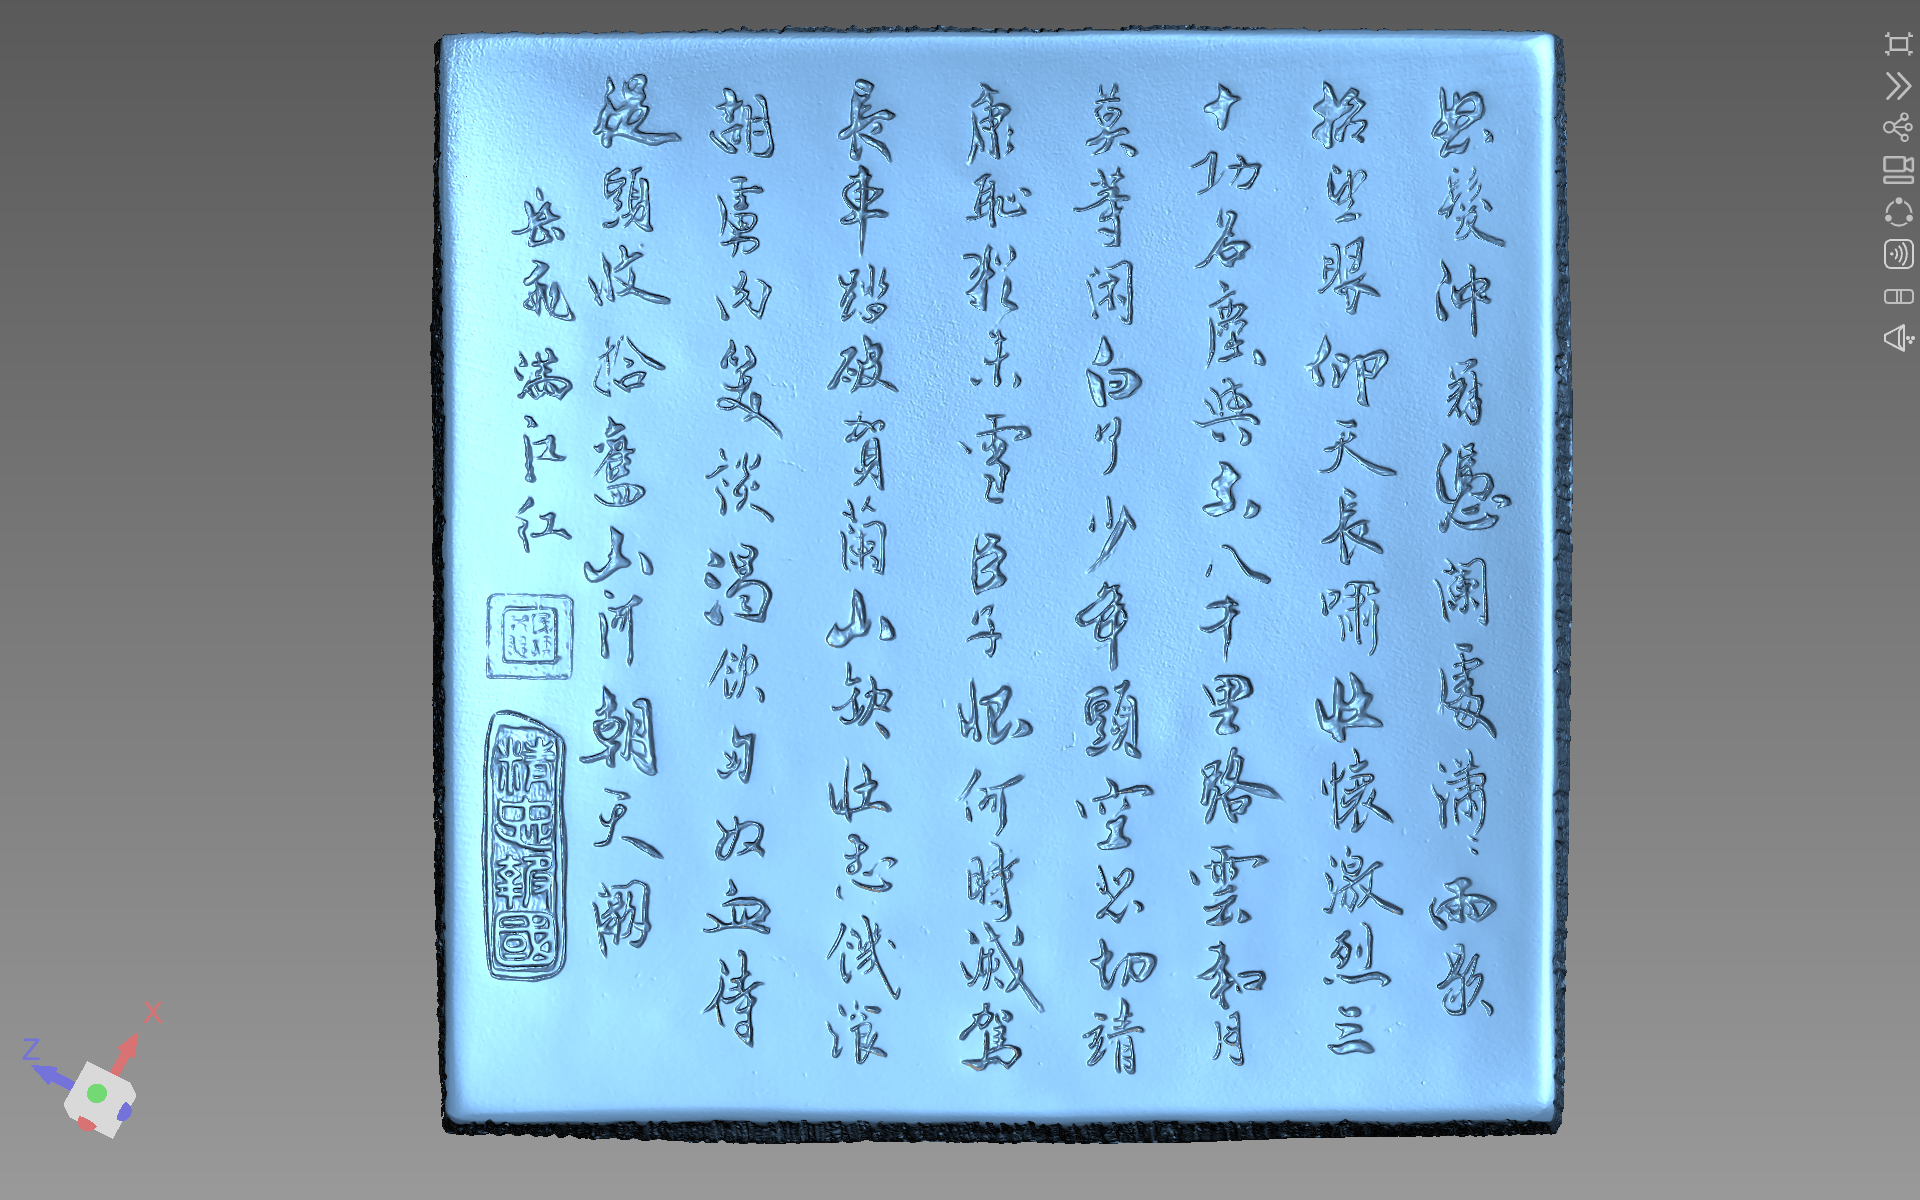 怒髮沖冠憑闌處瀟瀟雨歇
抬望眼仰天長嘯壯懷激烈三
十功名塵與土八千里路雲和月
莫等闲白了少年頭空悲切靖
康恥猶未雪臣子恨何時滅駕
長車踏破賀蘭山缺壯志飢餐
胡虜肉笑談渴飲匈奴血待
從頭收拾舊山河朝天闕
岳飛滿江红
精忠報國
X
Z